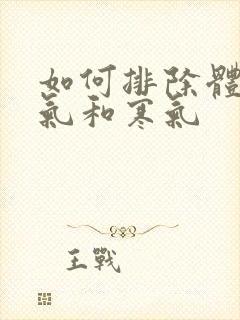 如何排除體
氣和寒氣
王戰